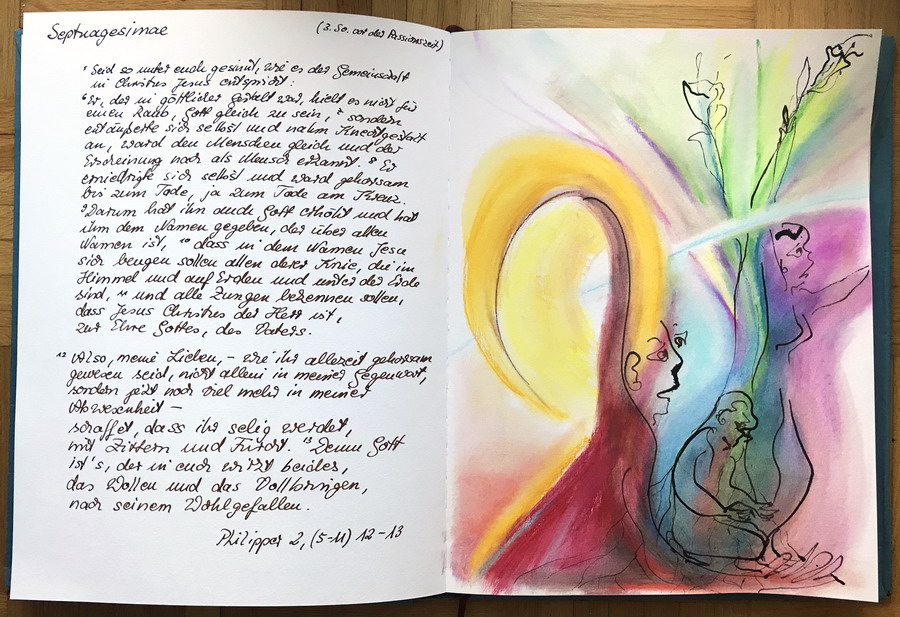 Septuagesimae
(3. So. vor der Passionszeit)
5 Seid so unter euch gesinnt, wie es der Gemeinschaft
in Christus Jesus entspricht:
6 Er, der in göttlicher Gestalt war, hielt es nicht für
einen Raub, Gott gleich zu sein, 7 sondern
entäußerte sich selbst und nahm Knechtgestalt
an, ward den Menschen gleich und der
Erscheinung nach als Mensch erkannt. 8 Er
erniedrigte sich selbst und ward gehorsam
bis zum Tode, ja zum Tode am Kreuz.
9 Darum hat ihn auch Gott erhöht und hat
ihm den Namen gegeben, der über allen
Namen ist, 10 dass in dem Namen Jesu
sich beugen sollen aller derer Knie, die im
Himmel und auf Erden und unter der Erde
sind, 11 und alle Zungen bekennen sollen,
dass Jesus Christus der Herr ist,
zur Ehre Gottes, des Vaters.
12 Also, meine Lieben, – wie ihr allezeit gehorsam
gewesen seid, nicht allein in meiner Gegenwart,
sondern jetzt noch viel mehr in meiner
Abwesenheit –
schaffet, dass ihr selig werdet,
mit Zittern und Furcht. 13 Denn Gott
ist's, der in euch wirkt beides,
das Wollen und das Vollbringen,
nach seinem Wohlgefallen.
Philipper 2, (5-11) 12-13